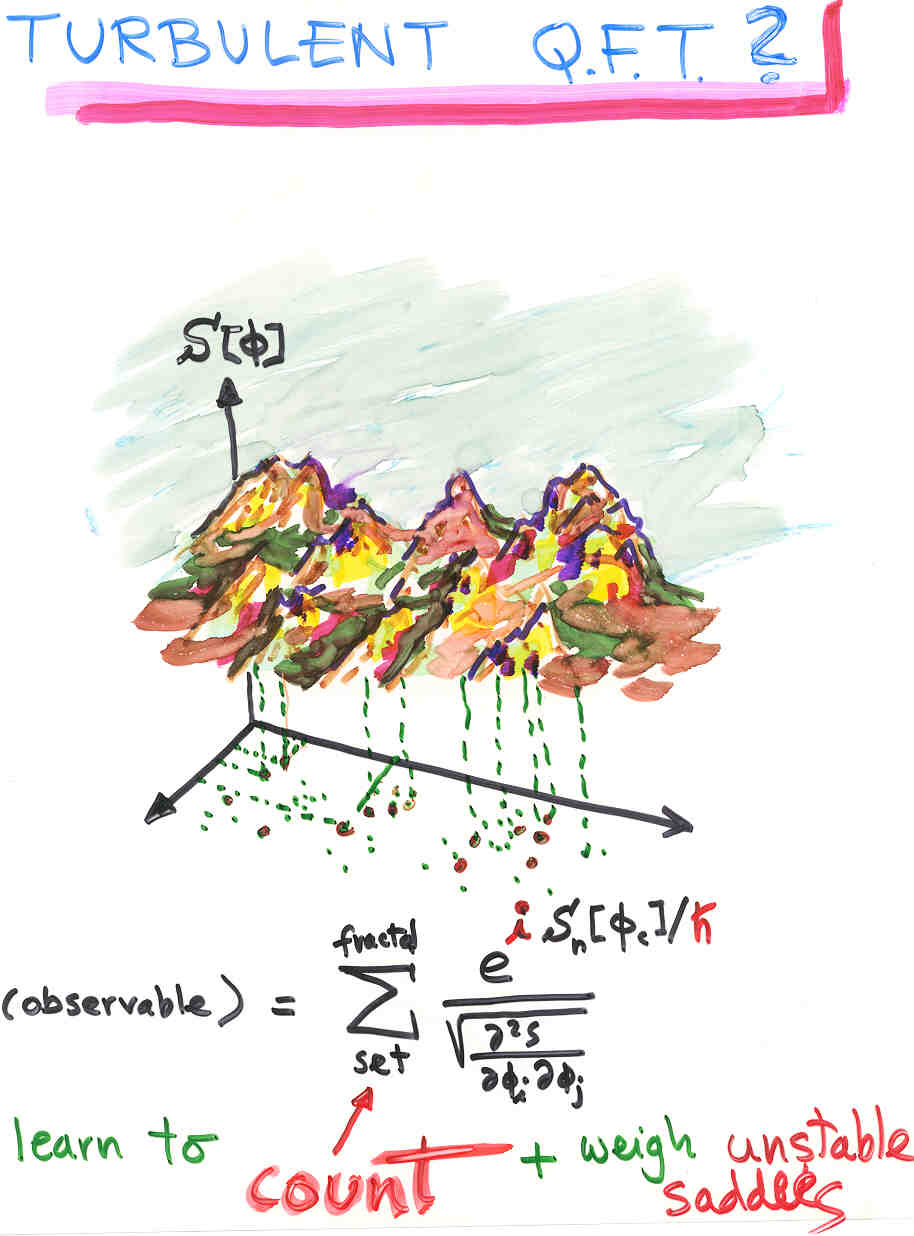 TURBULENT Q.F.T. ?
S[ϕ]
(observable) = ∑ fractal set e^{i Sₙ[ϕ_c]/ℏ} / √(∂²S/∂ϕᵢ∂ϕⱼ)
learn to count + weigh unstable saddles